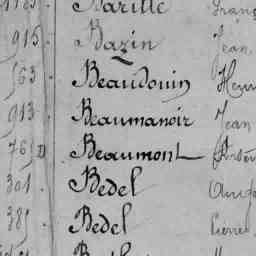 Barille
915 Bazin Jean
563 Beaudouin Henri
913 Beaumanoir Jean
761 D Beaumont
301 Bedel
381 Bedel Pierre